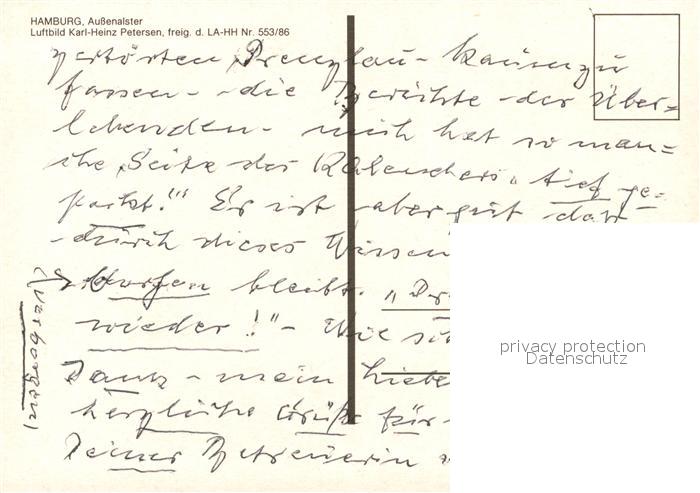 HAMBURG, Außenalster
Luftbild Karl-Heinz Petersen, freig. d. LA-HH Nr. 553/86
zerstörten Prenzlau - kaum zu
fassen - die Berichte der Über=
lebenden - mich hat so man=
che Seite des "tief ge=
packt!" Es ist aber gut daß
durch dieses Wissen
bleibt. "
wieder!" - Wie
Dank - mein Liebe
herzliche Grüße für
Deiner Betreuerin
(verborgen)
privacy protection
Datenschutz